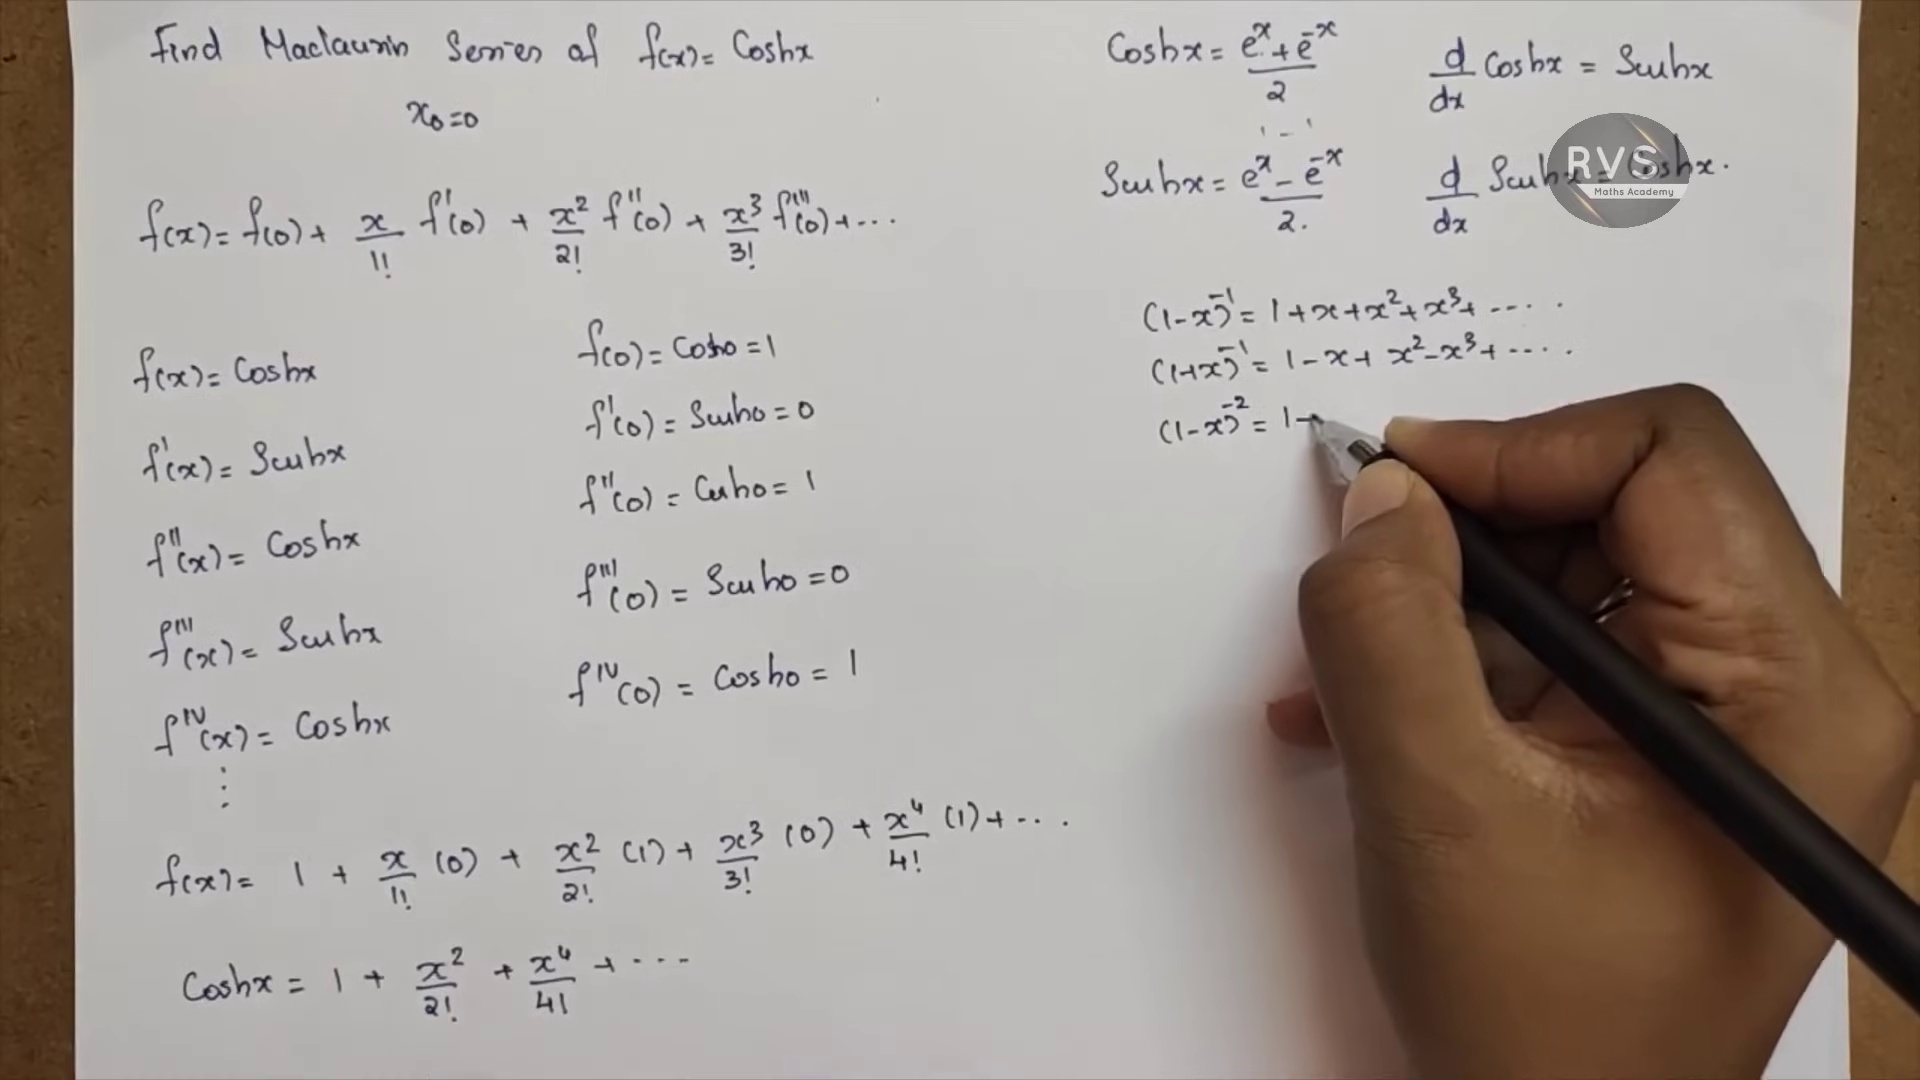 Find Maclaurin Series of f(x) = Coshx
x₀=0
f(x) = f(0) + x/1! f'(0) + x²/2! f''(0) + x³/3! f'''(0) + ...
f(x) = Coshx
f(0) = Cosh0 = 1
f'(x) = Sinhx
f'(0) = Sinh0 = 0
f''(x) = Coshx
f''(0) = Cosh0 = 1
f'''(x) = Sinhx
f'''(0) = Sinh0 = 0
f^IV(x) = Coshx
f^IV(0) = Cosh0 = 1
⋮
f(x) = 1 + x/1! (0) + x²/2! (1) + x³/3! (0) + x⁴/4! (1) + ...
Coshx = 1 + x²/2! + x⁴/4! + ...
Coshx = (e^x + e^-x)/2
d/dx Coshx = Sinhx
Sinhx = (e^x - e^-x)/2.
d/dx Sinhx = Coshx.
RVS
Maths Academy
(1-x)^-1 = 1 + x + x² + x³ + ....
(1+x)^-1 = 1 - x + x² - x³ + ....
(1-x)^-2 = 1 -